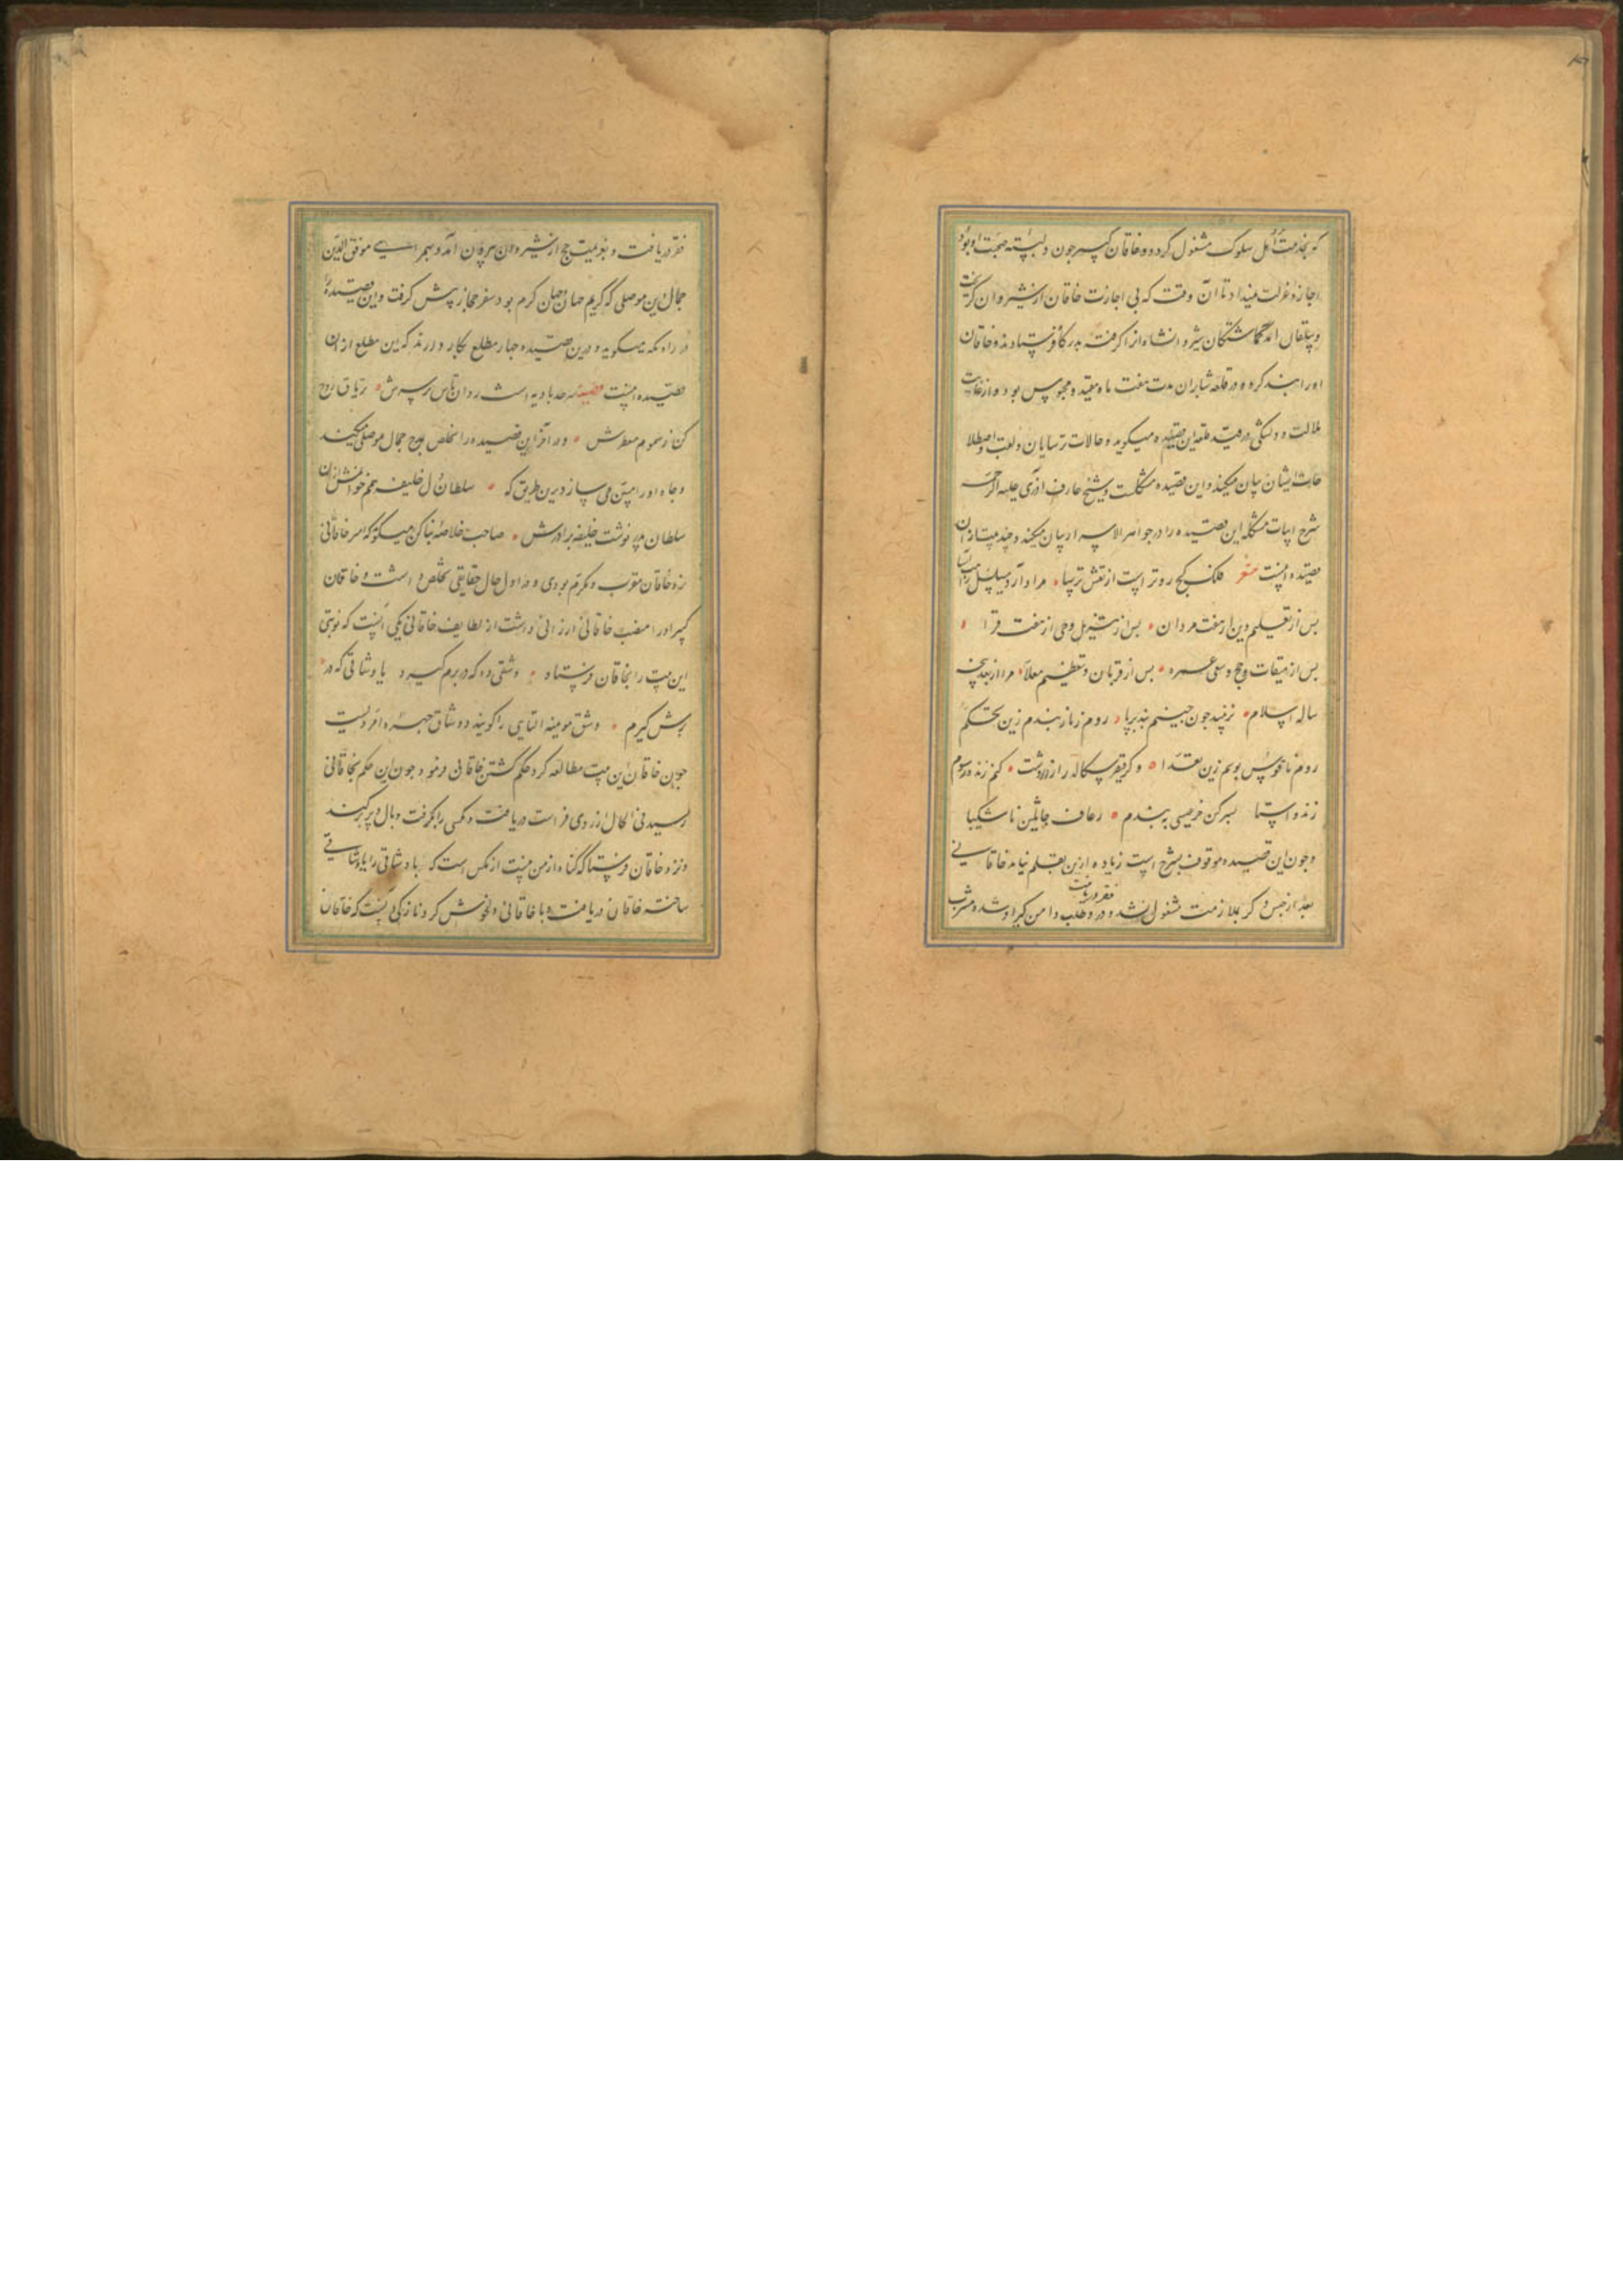 که بخدمت اهل سلوک مشغول کردد و خاقان کبیر چون دلبسته صحبت او بود
اجازه عزلت نمیداد تا آن وقت که بی اجازت خاقان از شیروان گریخت
و بیلقان آمد گماشتگان شیروانشاه او را گرفته بدرگاه فرستادند و خاقان
او را بند کرده در قلعه شابران مدت هفت ماه مقید و محبوس بود و از غایت
ملالت و دلتنگی در قید قلعه این قصیده میکوید و حالات ترسایان و لغت و اصطلا
حات ایشان بیان میکند و این قصیده مشکلست و شیخ عارف آذری علیه الرحمه
شرح ابیات مشکله این قصیده را در جواهر الاسرار بیان میکند و چند بیت از آن
قصیده اینست شعر فلک کج روتر است از خط ترسا مرا دارد مسلسل راهب آسا
پس از تعلیم دین از هفت مردان پس از تنزیل وحی از هفت قرا
پس از میقات و حج و سعی عمره پس از قربان و تعظیم معلا مرا از بعد پنجه
ساله اسلام نزیبد چون صلیبم بند بر پا روم زنار بندم زین تحکم
روم ناقوس بوسم زین تعدا وگر قیصر سکالد راز زردشت کنم زنده رسوم
زند و استا بسرگین خر عیسی ببندم رعاف جاثلیق ناشکیبا
و چون این قصیده موقوف بشرح است زیاده ازین بقلم نیامد خاقانی
بعد از حبس دگر بملازمت مشغول نشد و درد طلب دامن گیر او شده مشرب
فقر دریافت
فقر دریافت و بعزیمت حج از شیروان بیرون آمد و بهمراهی موفق الدین
جمال الدین موصلی که کریم جهان و جهان کرم بود سفر حجاز پیش گرفت و این قصیده
در راه مکه میکوید و درین قصیده چهار مطلع بکار دارد که این مطلع از آن
قصیده اینست قصیده سرحد بادیه است روان باش بر سرش تریاق روح
کن ز سموم معطرش و در آخر این قصیده را تخلص بمدح جمال موصلی میکند
و جاه او را مبین می سازد برین طریق که سلطان دل خلیفه همم خوانمش از آن
سلطان پدر نوشت خلیفه برادرش صاحب خلاصه بناکتی میکوید که امیر خاقانی
نزد خاقان مقرب و مکرم بودی و در اول حال حقایقی تخلص داشت و خاقان
کبیر او را منصب خاقانی ارزانی داشت از لطایف خاقانی یکی آنست که نوبتی
این بیت را بخاقان فرستاد وشقی ده که در برم گیرد یا وشاقی که در
برش گیرم وشق موینه التایی را گویند و وشاق چهره امردیست
چون خاقان این بیت مطالعه کرد حکم کشتن خاقانی فرمود چون این حکم بخاقانی
رسید فی الحال از روی فراست دریافت و مگسی را بگرفت و بال و پر بکند
و نزد خاقان فرستاد که گناه از من نیست از مگس است که با وشاقی را یا وشاقی
ساخته خاقان دریافت و با خاقانی دلخوش کرد و نازکی آنست که خاقان